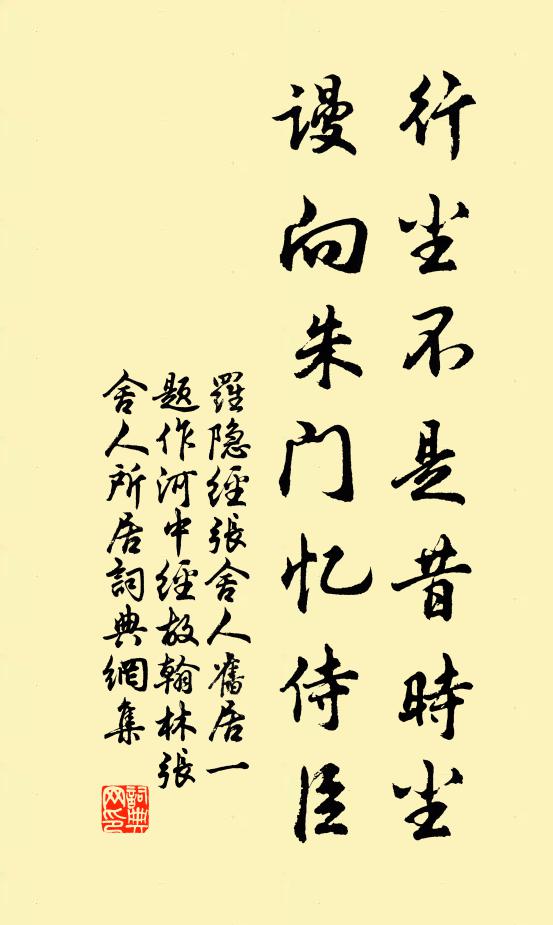 行尘不是昔時尘
谩向朱门忆侍臣
羅隐經張舍人舊居一
题作河中經故翰林張
舍人所居詞典網集
詞典
网印